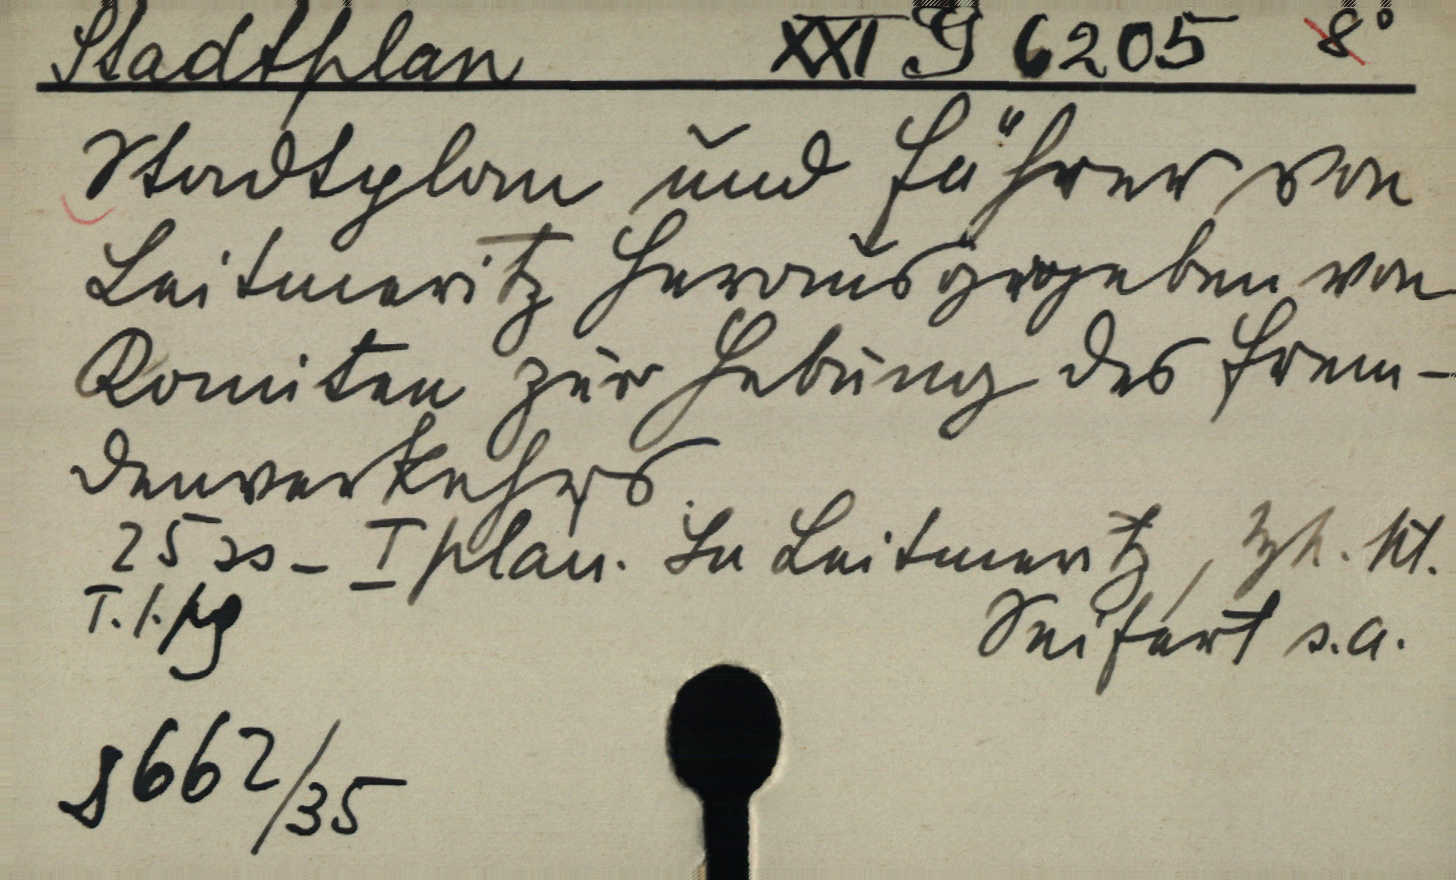 Stadtplan XXI G 6205 8°
Stadtplan und Führer von
Leitmeritz herausgegeben von
Komiteu zur Hebung des Frem-
denverkehrs
25 ss - I plan. In Leitmeritz,
T. I. Seifert s.a.
s 662/35